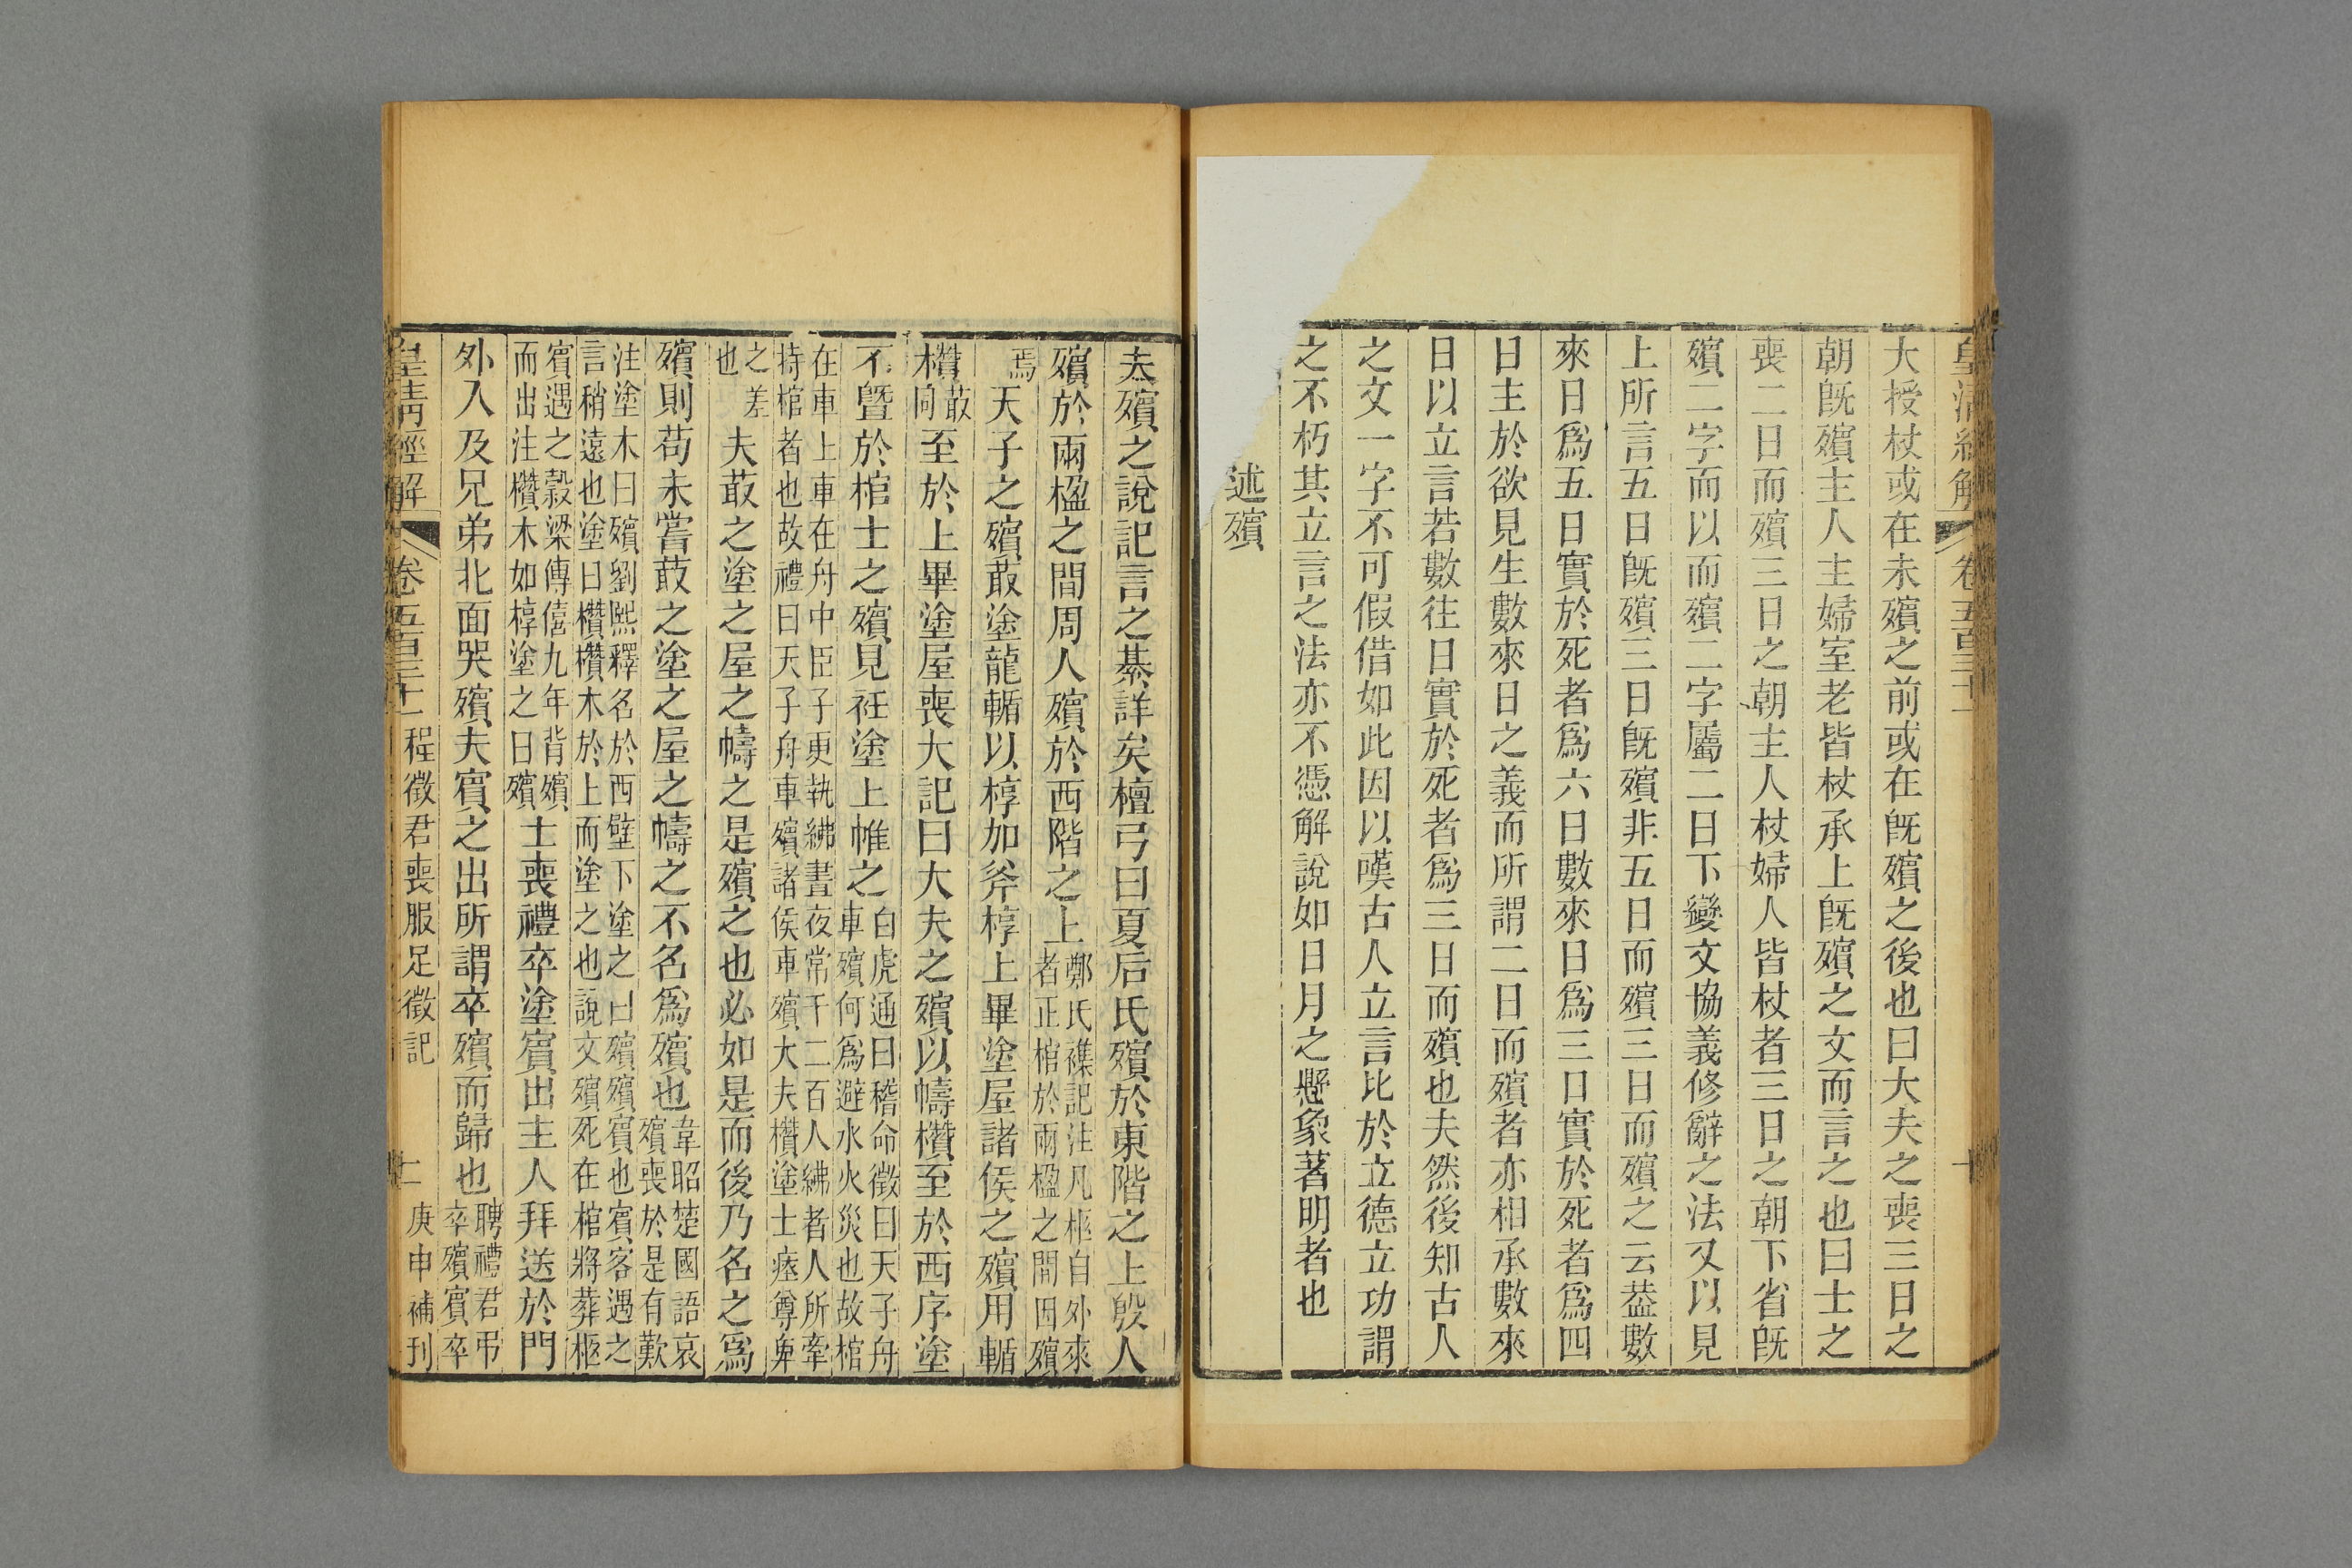 皇清經解 卷五百三十一 十
大授杖或在未殯之前或在旣殯之後也曰大夫之喪三日之
朝旣殯主人主婦室老皆杖承上旣殯之文而言之也曰士之
喪二日而殯三日之朝主人杖婦人皆杖者三日之朝下省旣
殯二字而以而殯二字屬二日下變文協義修辭之法又以見
上所言五日旣殯三日旣殯非五日而殯三日而殯之云葢數
來日爲五日實於死者爲六日數來日爲三日實於死者爲四
日主於欲見生數來日之義而所謂二日而殯者亦相承數來
日以立言若數往日實於死者爲三日而殯也夫然後知古人
之文一字不可假借如此因以嘆古人立言比於立德立功謂
之不朽其立言之法亦不憑解說如日月之懸象著明者也
述殯
夫殯之說記言之綦詳矣檀弓曰夏后氏殯於東階之上殷人
殯於兩楹之間周人殯於西階之上鄭氏襍記注凡柩自外來者正棺於兩楹之間因殯
焉天子之殯菆塗龍輴以椁加斧椁上畢塗屋諸侯之殯用輴
欑菆同至於上畢塗屋喪大記曰大夫之殯以幬欑至於西序塗
不曁於棺士之殯見衽塗上帷之白虎通曰稽命徵曰天子舟車殯何爲避水火災也故棺
在車上車在舟中臣子更執紼晝夜常千二百人紼者人所牽持棺者也故禮曰天子舟車殯諸侯車殯大夫欑塗士瘞尊卑
之差也夫菆之塗之屋之幬之是殯之也必如是而後乃名之爲
殯則苟未嘗菆之塗之屋之幬之不名爲殯也韋昭楚國語哀殯喪於是有歎
注塗木曰殯劉熙釋名於西壁下塗之曰殯殯賓也賓客遇之言稍遠也塗曰欑欑木於上而塗之也說文殯死在棺將葬柩
賓遇之穀梁傳僖九年背殯而出注欑木如椁塗之曰殯士喪禮卒塗賓出主人拜送於門
外入及兄弟北面哭殯夫賓之出所謂卒殯而歸也聘禮君弔卒殯賓卒
皇清經解 卷五百三十一 程徵君喪服足徵記 十一 庚申補刊